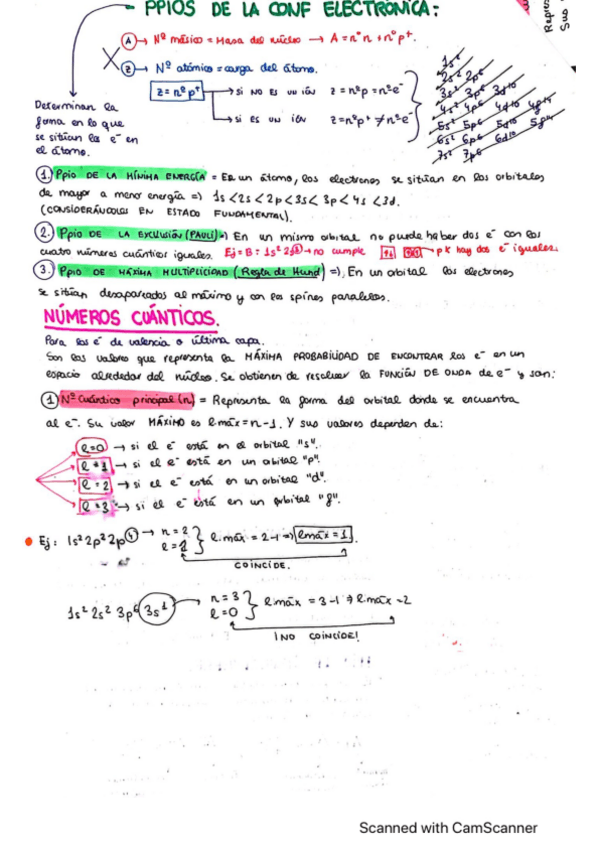 PPIOS DE LA CONF ELECTRÓNICA:
Repres
Sus
A → Nº másico = Masa del núcleo → A = nº n + nº p⁺.
X
Z → Nº atómico = carga del átomo.
Z = nº p⁺
→ si NO ES UN IÓN Z = nº p = nº e⁻
→ si ES UN IÓN Z = nº p⁺ ≠ nº e⁻
1s²
2s² 2p⁶
3s² 3p⁶ 3d¹⁰
4s² 4p⁶ 4d¹⁰ 4f¹⁴
5s² 5p⁶ 5d¹⁰ 5f¹⁴
6s² 6p⁶ 6d¹⁰
7s² 7p⁶
Determinan la
forma en lo que
se sitúan los e⁻ en
el átomo.
1. Ppio DE LA MÍNIMA ENERGÍA = En un átomo, los electrones se sitúan en los orbitales
de mayor a menor energía => 1s < 2s < 2p < 3s < 3p < 4s < 3d.
(CONSIDERÁNDOLOS EN ESTADO FUNDAMENTAL).
2. Ppio DE LA EXCLUSIÓN (PAULI) => En un mismo orbital no puede haber dos e⁻ con los
cuatro números cuánticos iguales. Ej = B: 1s² 2s³ → no cumple → pk hay dos e⁻ iguales.
3. Ppio DE MÁXIMA MULTIPLICIDAD (Regla de Hund) =>, En un orbital los electrones
se sitúan desapareados al máximo y con los spines paralelos.
NÚMEROS CUÁNTICOS.
Para los e⁻ de valencia o última capa.
Son los valores que representa la MÁXIMA PROBABILIDAD DE ENCONTRAR los e⁻ en un
espacio alrededor del núcleo. Se obtienen de resolver la FUNCIÓN DE ONDA de e⁻ y son:
1 Nº cuántico principal (n) = Representa la forma del orbital donde se encuentra
al e⁻. Su valor MÁXIMO es l máx = n - 1. Y sus valores dependen de:
l = 0 → si el e⁻ está en el orbital "s".
l = 1 → si el e⁻ está en un orbital "p".
l = 2 → si el e⁻ está en un orbital "d".
l = 3 → si el e⁻ está en un orbital "f".
Ej: 1s² 2p² 2p⁴ → n = 2
l = 1 } l máx = 2 - 1 => l máx = 1.
COINCIDE.
1s² 2s² 3p⁶ 3s¹ → n = 3
l = 0 } l máx = 3 - 1 => l máx = 2
¡NO COINCIDE!
Scanned with CamScanner